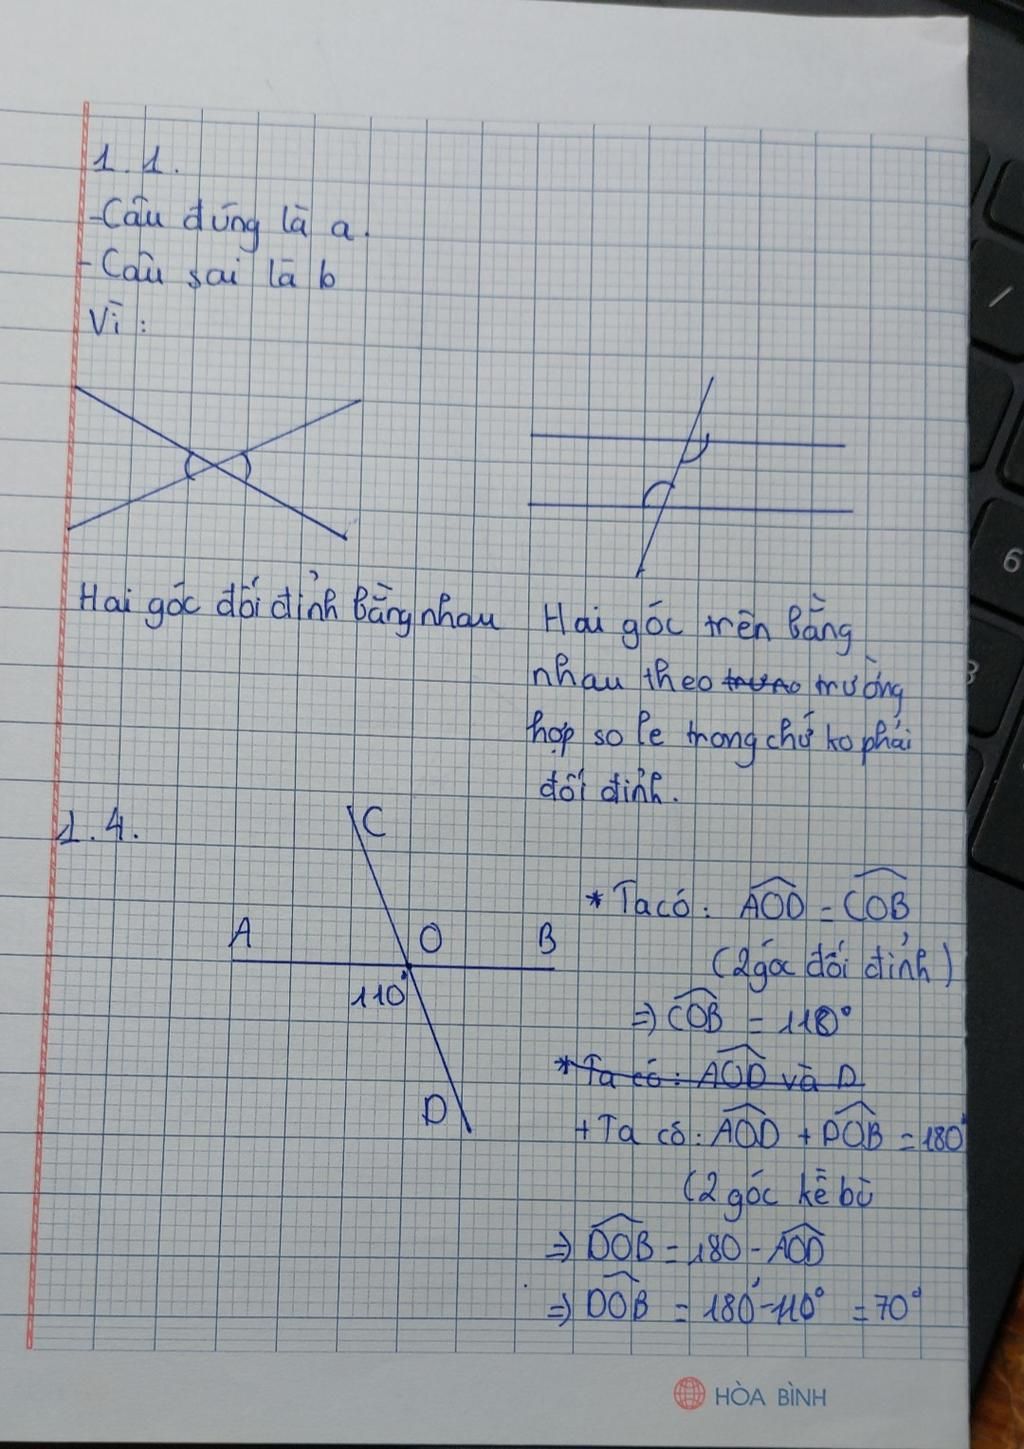 1.1.
-Câu đúng là a.
-Câu sai là b
Vì:
Hai góc đối đỉnh bằng nhau
Hai góc trên bằng
nhau theo trường
hợp so le trong chứ ko phải
đối đỉnh.
1.4.
C
A O B
110°
D
* Ta có: AOD = COB
(2 góc đối đỉnh)
=> COB = 110°
*Ta có: AOD và D
+Ta có: AOD + DOB = 180°
(2 góc kề bù
=> DOB = 180 - AOD
=> DOB = 180° - 110° = 70°
HÒA BÌNH
6